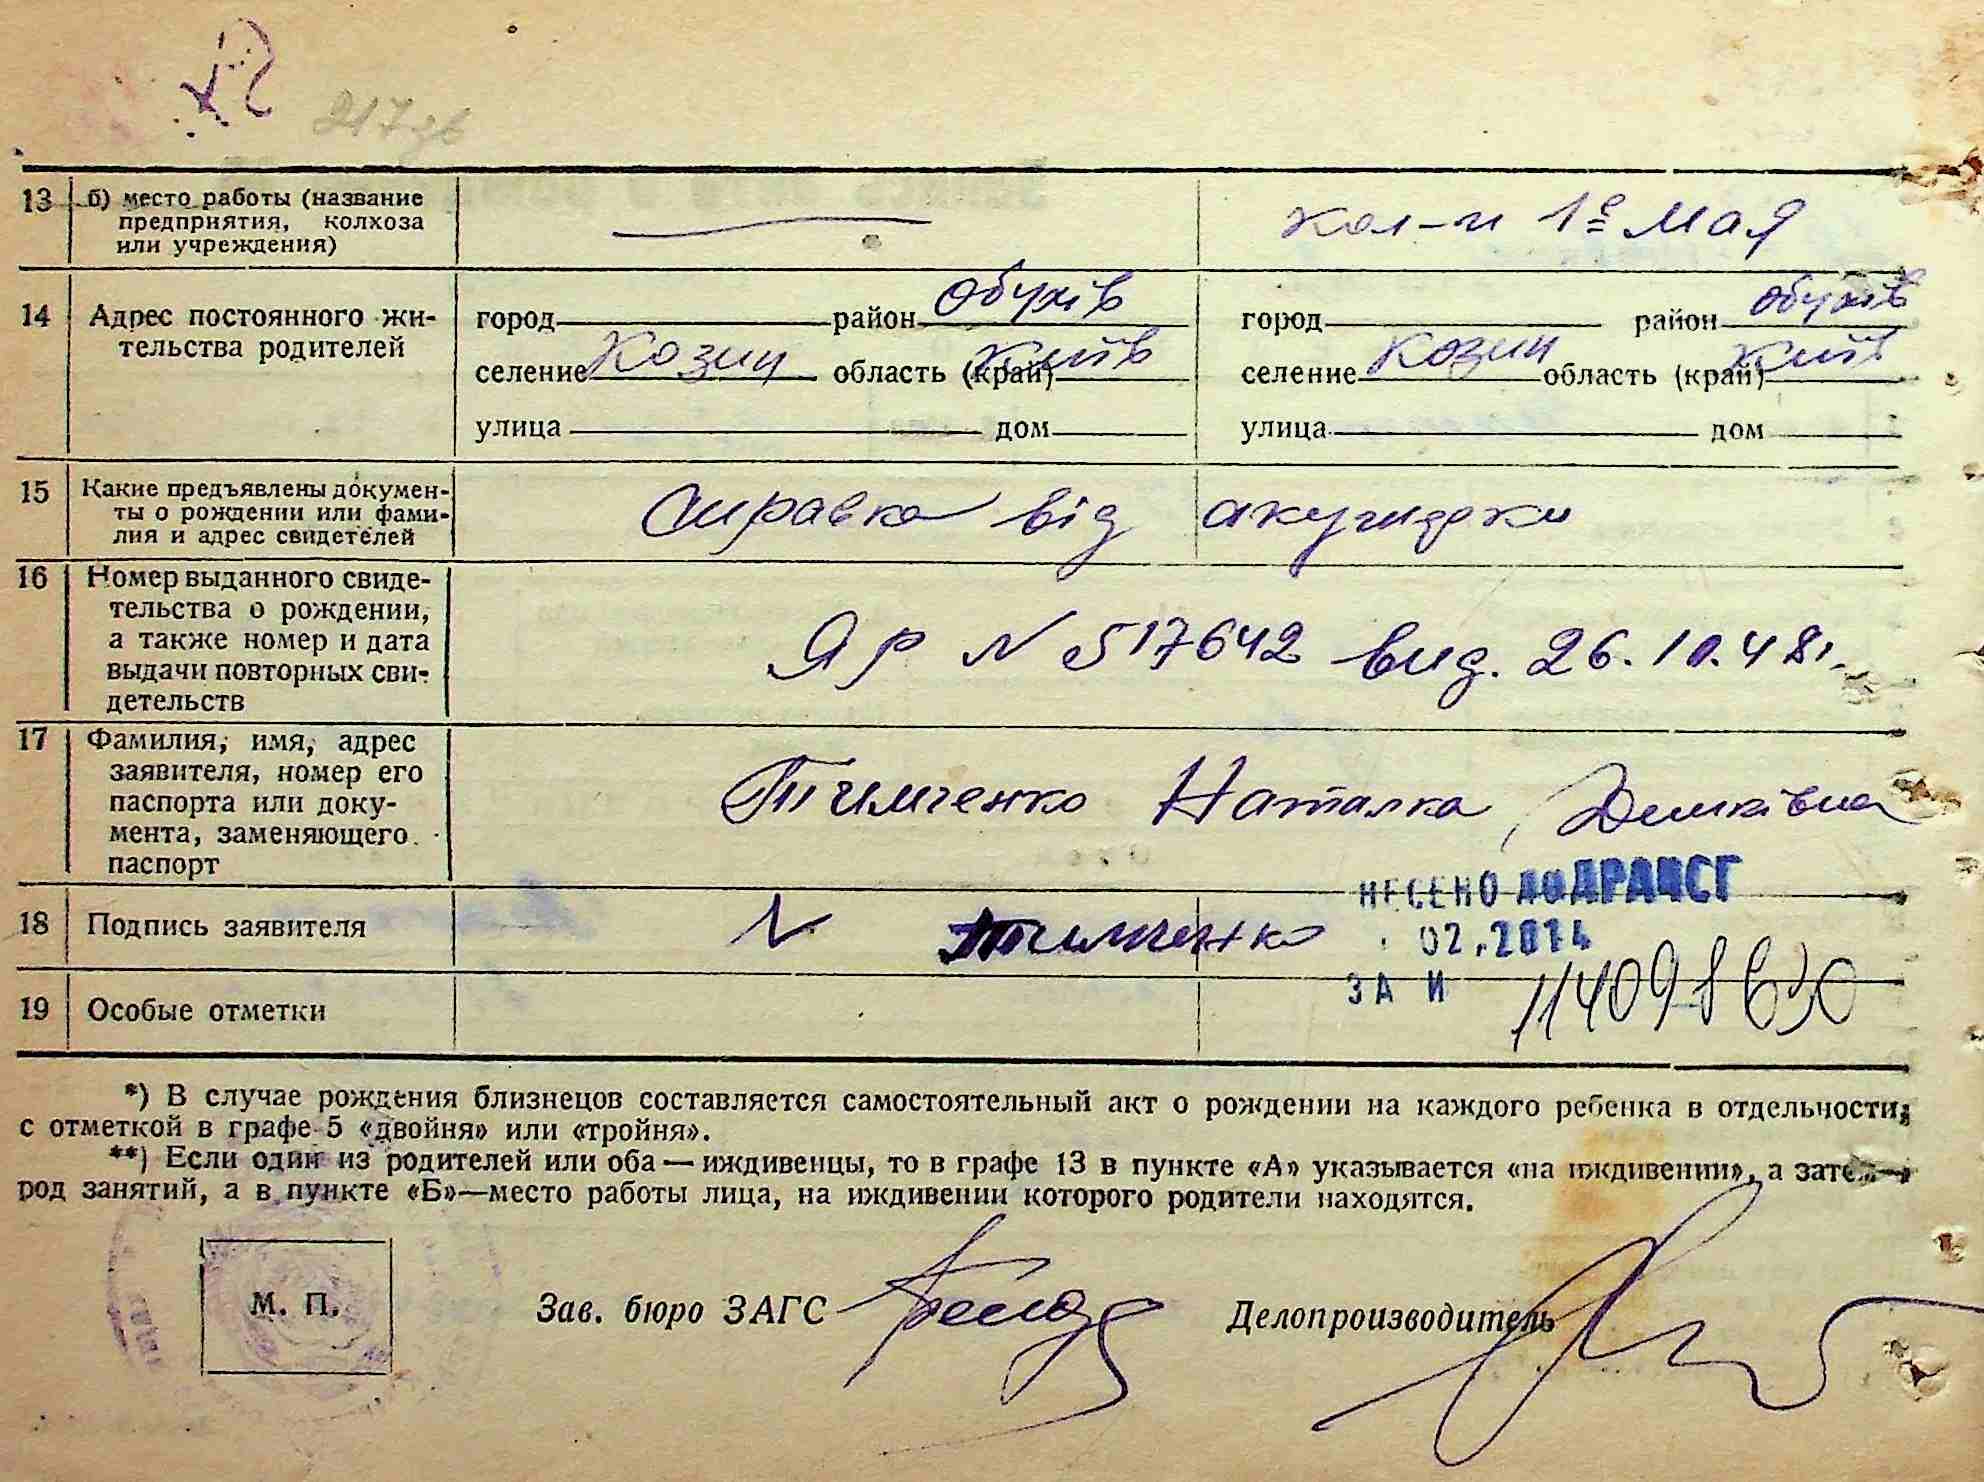 217зв
13 б) место работы (название
предприятия, колхоза
или учреждения)
кол-п 1е Мая
14 Адрес постоянного жи-
тельства родителей
город район Обухів город район Обухів
селение Козин область (край) Київ селение Козин область (край) Київ
улица дом улица дом
15 Какие предъявлены докумен-
ты о рождении или фами-
лия и адрес свидетелей
Справка від акушерки
16 Номер выданного свиде-
тельства о рождении,
а также номер и дата
выдачи повторных сви-
детельств
ЯР N 517642 вид. 26.10.48г.
17 Фамилия, имя, адрес
заявителя, номер его
паспорта или доку-
мента, заменяющего
паспорт
Тимченко Наталка Демківна
НЕСЕНО ДО ДРАЦСГ
18 Подпись заявителя
Тимченко
02.2014
ЗА И
19 Особые отметки
*) В случае рождения близнецов составляется самостоятельный акт о рождении на каждого ребенка в отдельности,
с отметкой в графе 5 «двойня» или «тройня».
**) Если один из родителей или оба — иждивенцы, то в графе 13 в пункте «А» указывается «на иждивении», а зате
род занятий, а в пункте «Б»—место работы лица, на иждивении которого родители находятся.
М. П.
Зав. бюро ЗАГС
Делопроизводитель